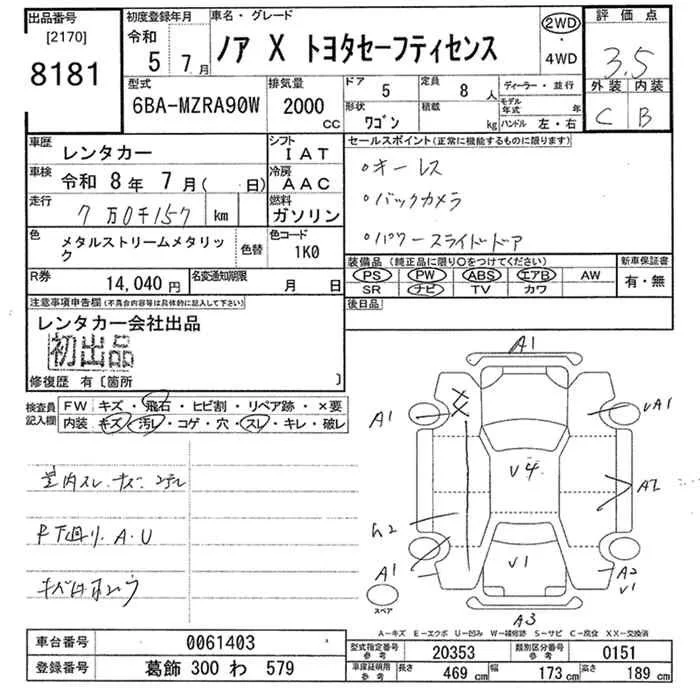 出品番号
[2170]
8181
初度登録年月
令和
5 7月
車名・グレード
ノア X トヨタセーフティセンス
2WD
・
4WD
評価点
3.5
外装 内装
C B
型式
6BA-MZRA90W
排気量
2000
CC
ドア
5
定員
8 人
ディーラー・並行
形状
ワゴン
積載
kg
モデル年式
年
ハンドル 左・右
車歴
レンタカー
シフト
IAT
車検
令和 8年 7月( 日)
冷房
AAC
走行
7万0千157 km
燃料
ガソリン
色
メタルストリームメタリック
色替
色コード
1K0
R券
14,040円
名変通知期限
月 日
セールスポイント(正常に機能するものに限ります)
○キーレス
○バックカメラ
○パワースライドドア
装備品 (純正品に限り○をつけてください)
PS PW ABS エアB AW
SR ナビ TV カワ
新車保証書
有・無
後日品
注意事項申告欄(不具合内容等は具体的に記入して下さい)
レンタカー会社出品
初出品
修復歴 有〔箇所 〕
検査員
記入欄
FW キズ・飛石・ヒビ割・リペア跡・×要
内装 キズ・汚レ・コゲ・穴・スレ・キレ・破レ
A1
A1
vA1
v4
A2
A1
v1
A2
v1
A3
スペア
室内スレ.キズ.ヨゴレ
下廻り.A.U
A-キズ E-エクボ U-凹み W-補修跡 S-サビ C-腐食 XX-交換済
車台番号 0061403
登録番号 葛飾 300 わ 579
型式指定番号
参考
20353
類別区分番号
参考
0151
車庫証明用
参考
長さ 469 cm 幅 173 cm 高さ 189 cm